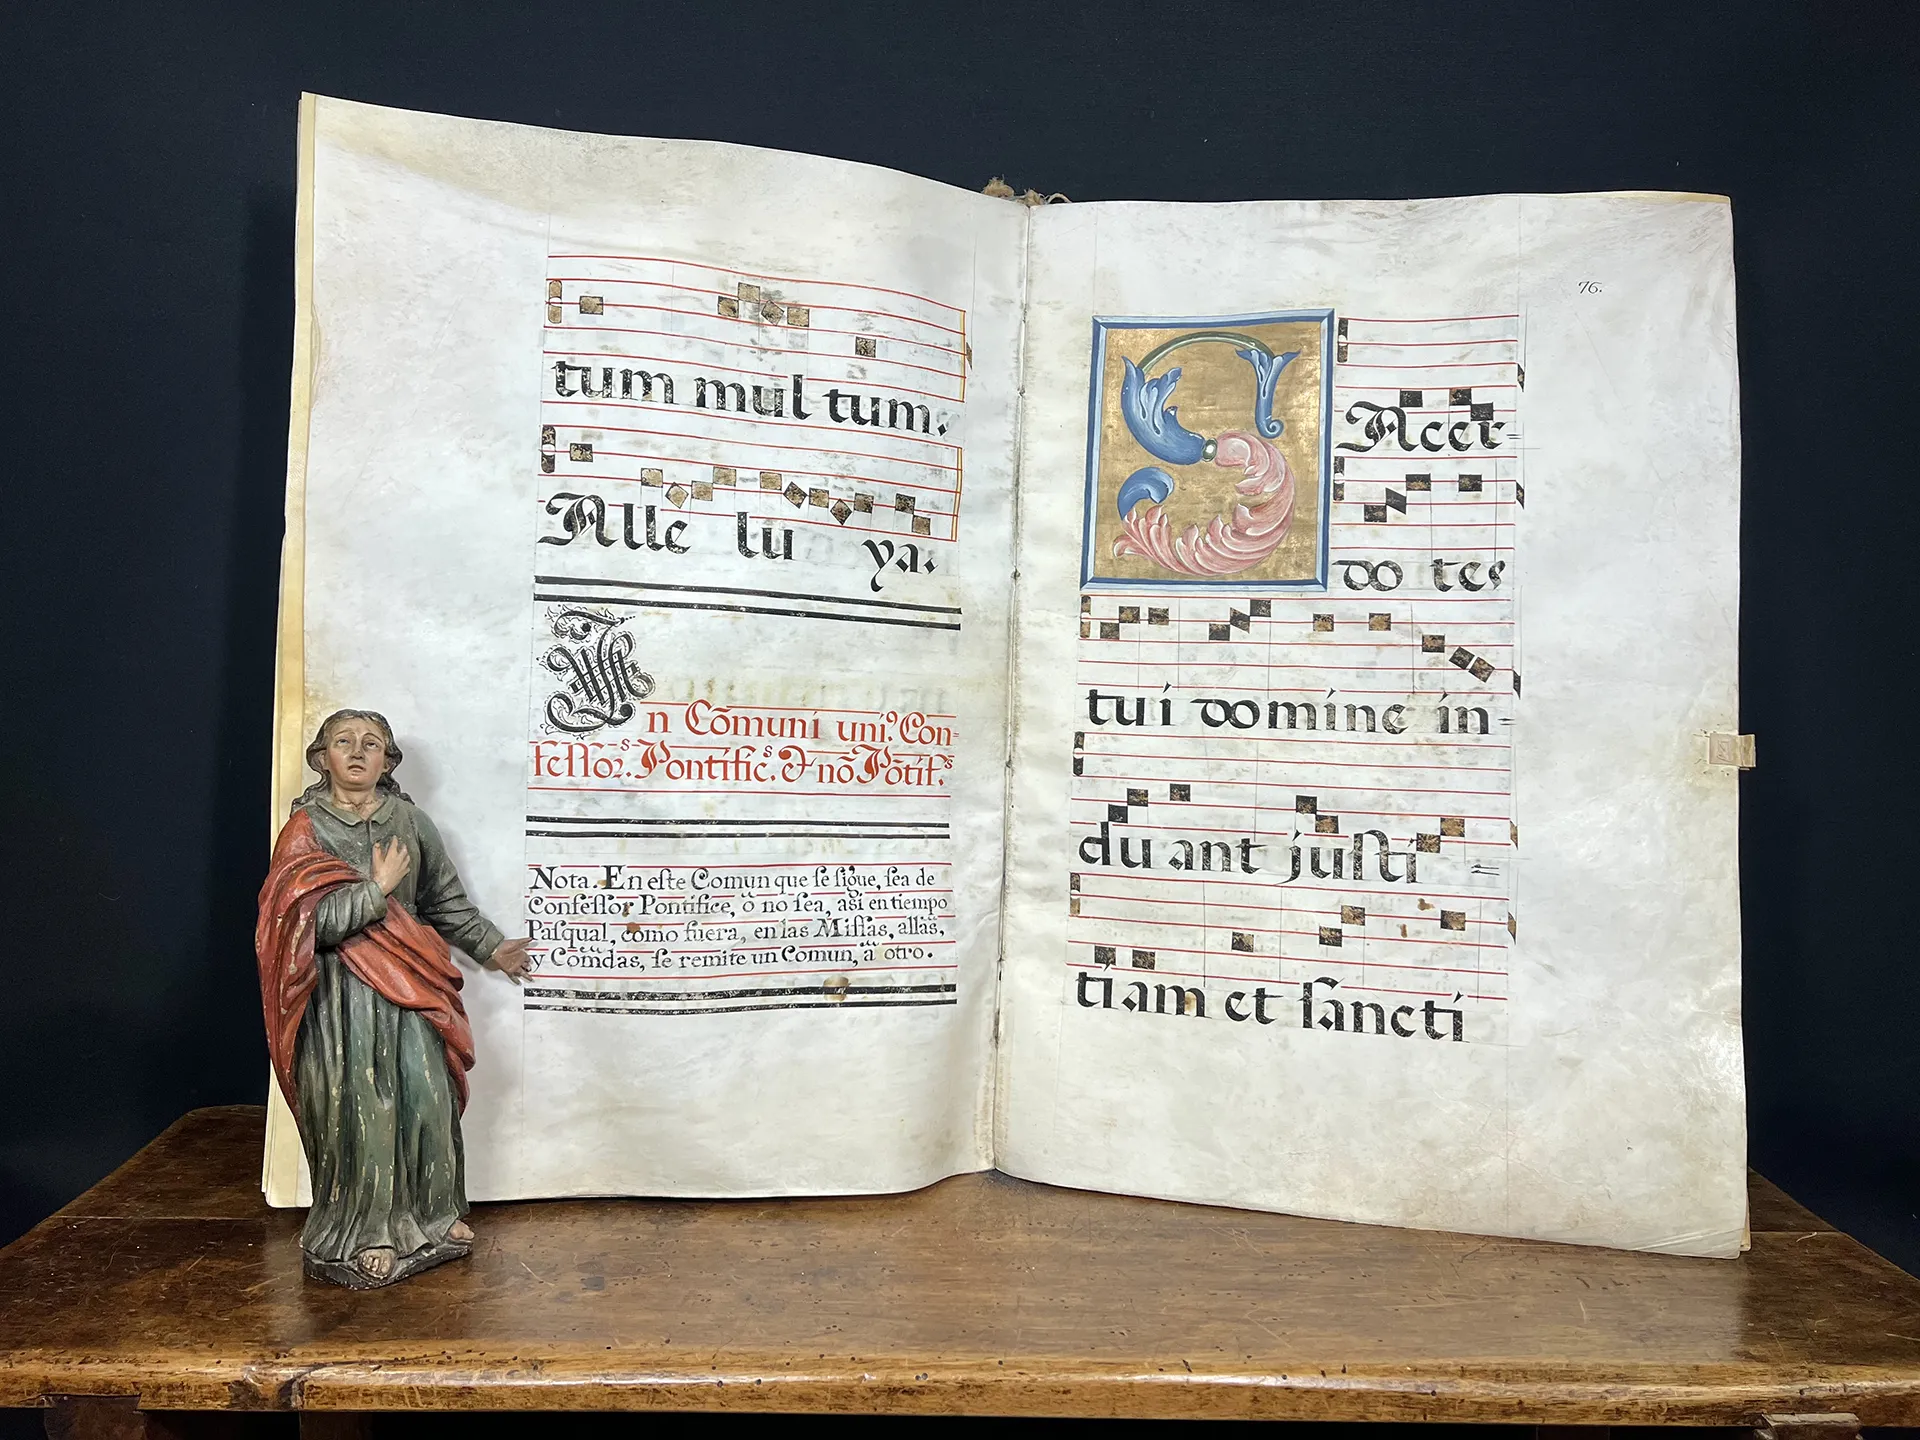 tum mul tum.
Alle lu ya.
In Cõmuni uni.⁹ Con=
feſſor.ˢ Pontific.ˢ & nõ Põtif.ˢ
Nota. En eſte Comun que ſe ſigue, ſea de
Confeſſor Pontifice, ò no ſea, aſi en tiempo
Paſqual, como fuera, en las Miſſas, allas,
y Cõmdas, ſe remite un Comun, à otro.
76.
SAcer=
do tes
tui domine in=
du ant juſti =
tiam et ſancti